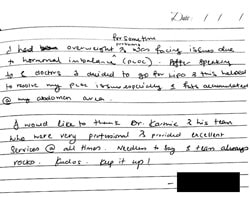 Date: / /
for sometime
I had overweight & was facing issues due
problems
to hormonal imbalance (PCOC). After speaking
to 2 doctors I decided to go for lipo & this helped
to resolve my PCOC issue especially & fats accumulated
@ my abdomen area.
I would like to thank Dr. Karmic & his team
who were very professional & provided excellent
services @ all times. Needless to say & team always
rocks. Kudos. Keep it up!